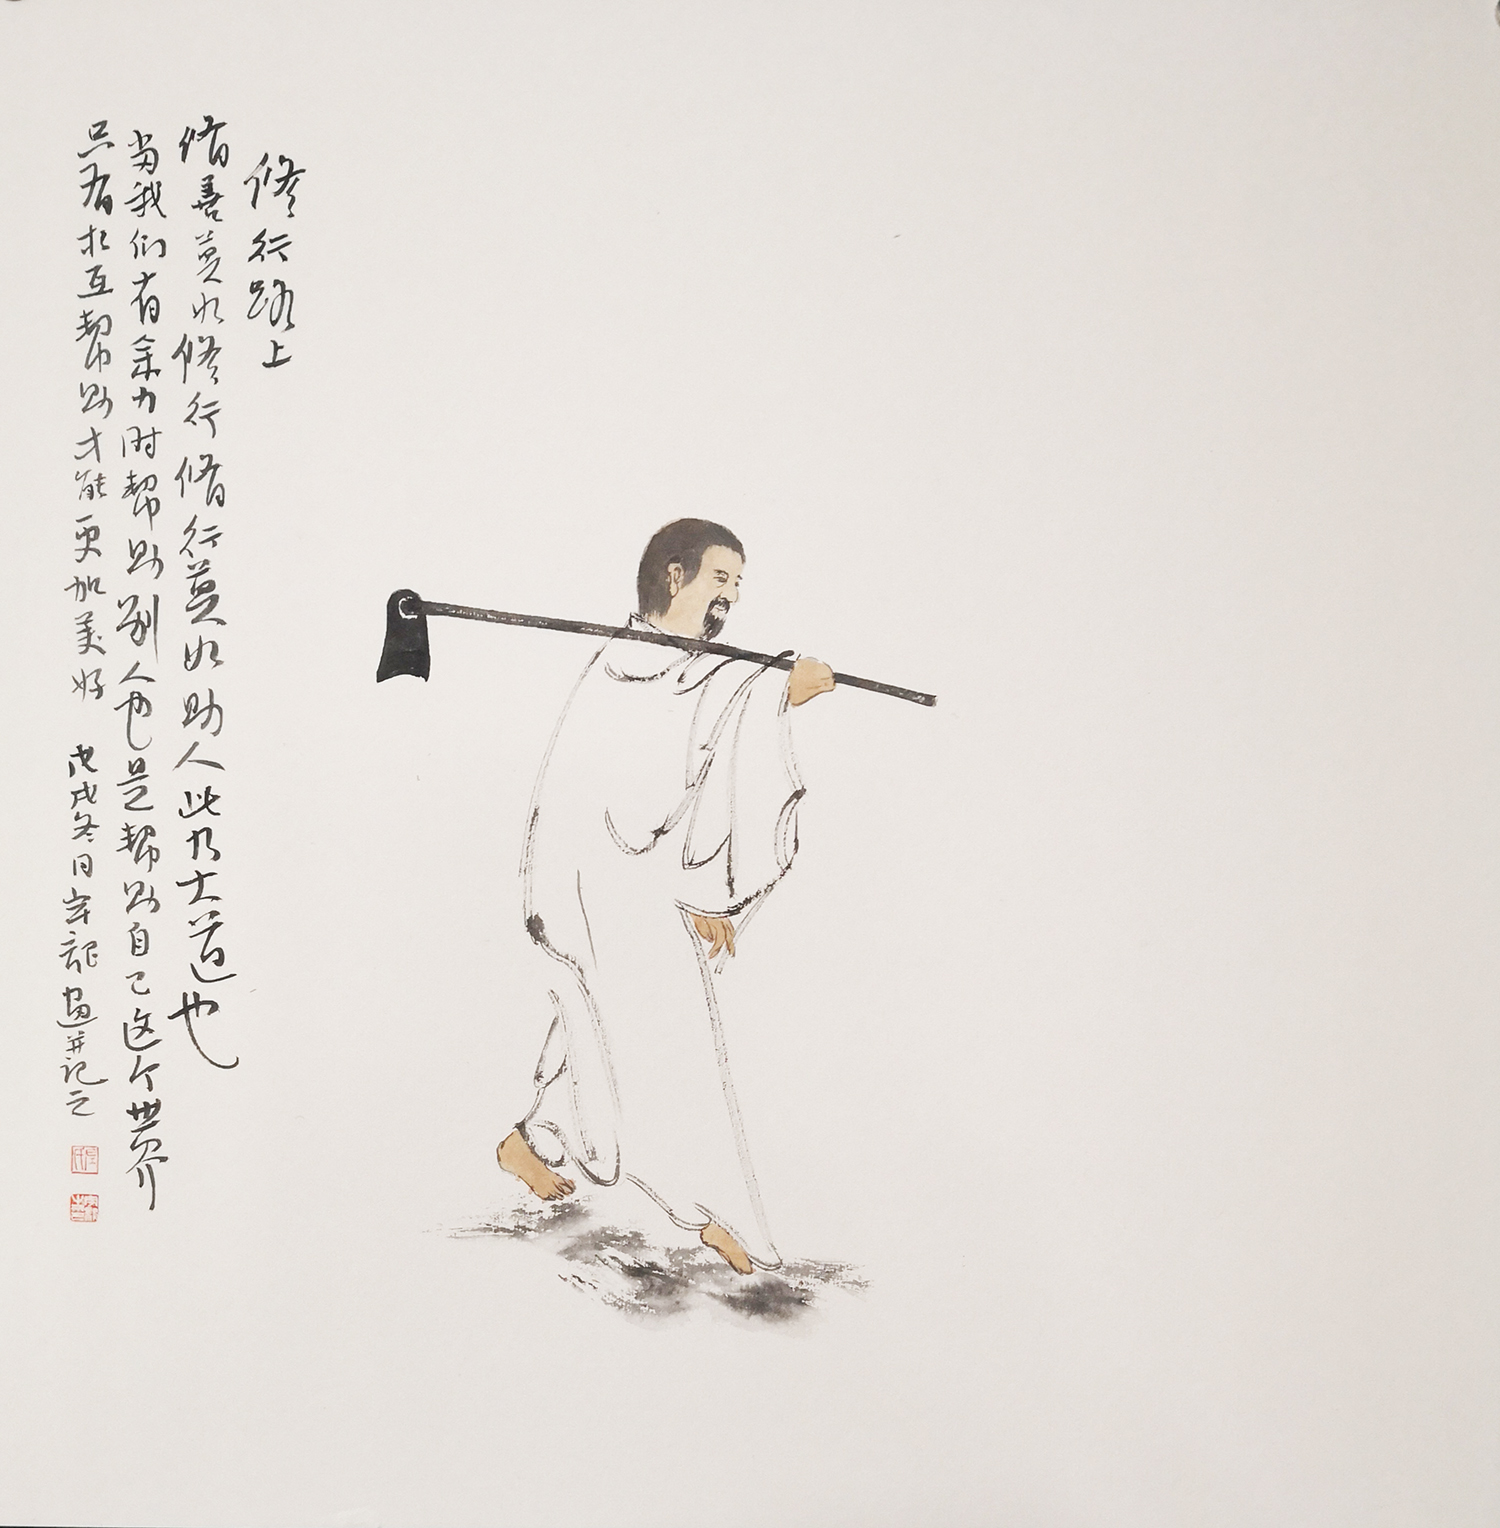 修行路上
脩善莫如修行脩行莫如助人此乃大道也
当我们有余力时幫助别人也是幫助自己这个世界
只有相互幫助才能更加美好 戊戌冬日 画并记之